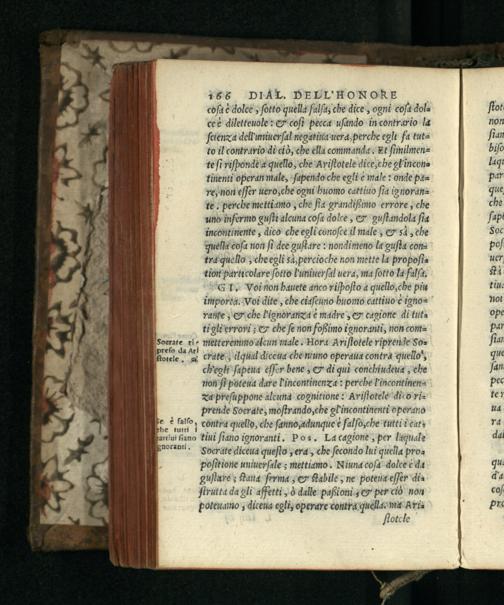 166 DIAL. DELL'HONORE
cosa è dolce, sotto quella falsa, che dice, ogni cosa dol-
ce è diletteuole: & così pecca usando in contrario la
scienza dell'uniuersal negatiua uera, perche egli fa tut-
to il contrario di ciò, che ella commanda. Et similmen-
te si risponde a quello, che Aristotele dice, che gl'incon-
tinenti operan male, sapendo che egli è male: onde pa-
re, non esser uero, che ogni huomo cattiuo sia ignoran-
te. perche mettiamo, che sia grandissimo errore, che
uno infermo gusti alcuna cosa dolce, & gustandola sia
incontinente, dico che egli conosce il male, & sà, che
quella cosa non si dee gustare: nondimeno la gusta con-
tra quello, che egli sà, percioche non mette la proposi-
tion particolare sotto l'uniuersal uera, ma sotto la falsa.
GI. Voi non hauete anco risposto a quello, che piu
importa. Voi dite, che ciascuno huomo cattiuo è igno-
rante, & che l'ignoranza è madre, & cagione di tut-
ti gli errori; & che se non fossimo ignoranti, non com-
metteremmo alcun male. Hora Aristotele riprende So-
crate, ilqual diceua che niuno operaua contra quello,
ch'egli sapeua esser bene, & di quì conchiudeua, che
non si poteua dare l'incontinenza: perche l'incontinen-
za presuppone alcuna cognitione: Aristotele dico ri-
prende Socrate, mostrando, che gl'incontinenti operano
contra quello, che sanno, adunque è falso, che tutti i cat-
tiui siano ignoranti. POS. La cagione, per laquale
Socrate diceua questo, era, che secondo lui quella pro-
positione uniuersale; mettiamo. Niuna cosa dolce è da
gustare; staua ferma, & stabile, ne poteua esser di-
strutta da gli affetti, ò dalle passioni, & per ciò non
poteuamo, diceua egli, operare contra quella. ma Ari-
stotele
Socrate ri-
preso da Ari
stotele.
Se è falso,
che tutti i
cattiui siano
ignoranti.